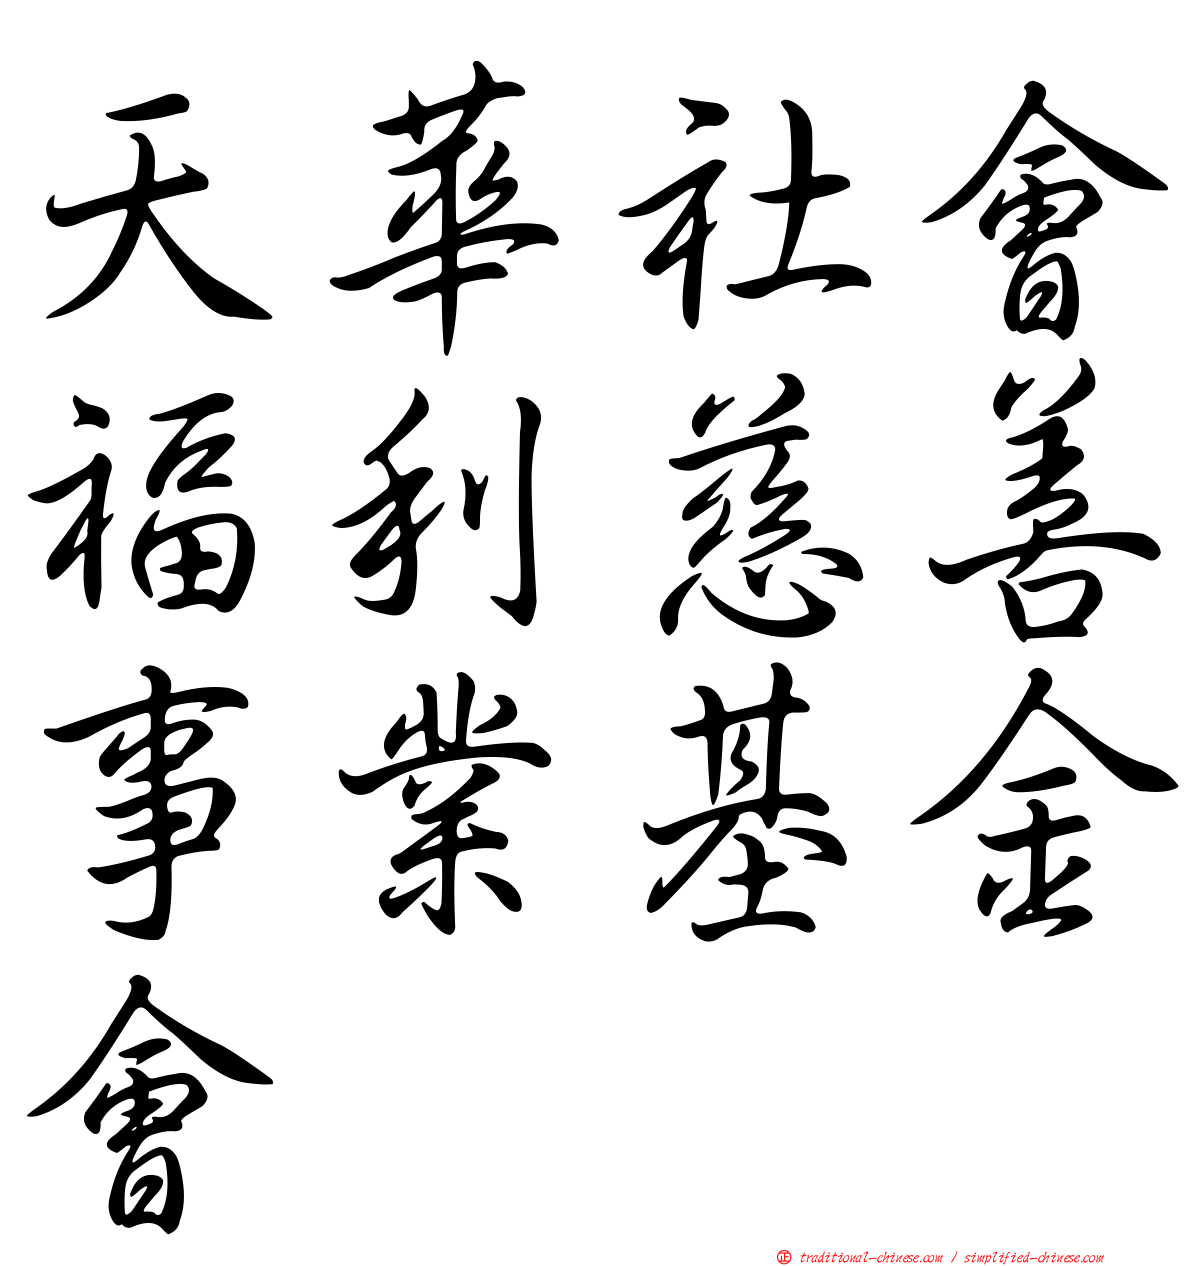 天華社會
福利慈善
事業基金
會
正 traditional-chinese.com / simplified-chinese.com